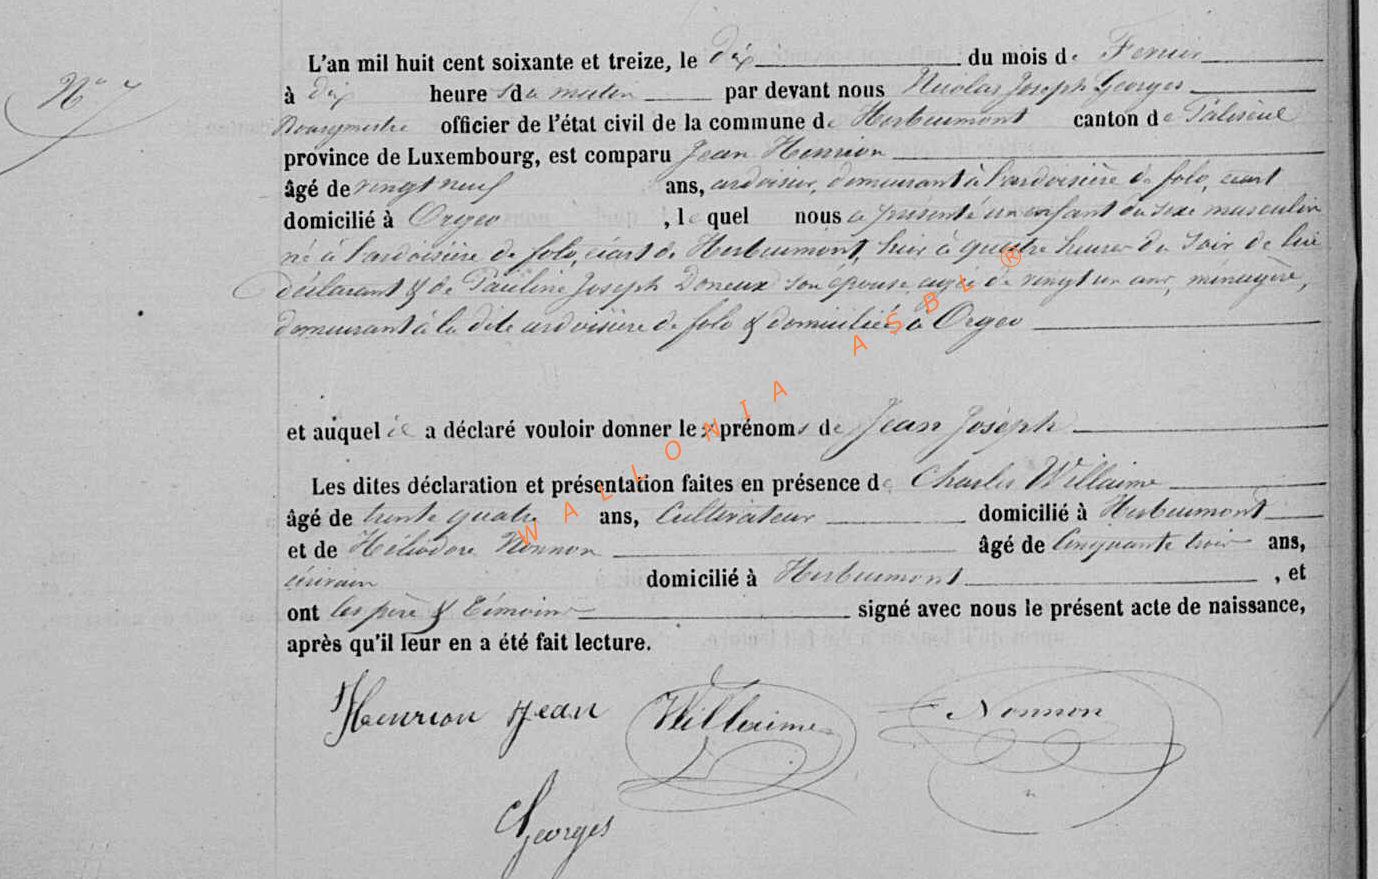 N° 7
L'an mil huit cent soixante et treize, le dix du mois de Fevrier
à dix heures du matin par devant nous Nicolas Joseph Georges
Bourgmestre officier de l'état civil de la commune de Herbeumont canton de Paliseul
province de Luxembourg, est comparu Jean Henrion
âgé de vingt neuf ans, ardoisier, demeurant à l'ardoisière de folo, écart
domicilié à Orgeo , lequel nous a présenté un enfant du sexe masculin
né à l'ardoisière de folo, écart de Herbeumont, hier à quatre heures du soir de lui
déclarant & de Pauline Joseph Doneux son épouse agée de vingt un ans, ménagère,
demeurant à la dite ardoisière de folo & domiciliés à Orgeo
et auquel il a déclaré vouloir donner les prénoms de Jean Joséph
Les dites déclaration et présentation faites en présence de Charles Willaime
âgé de trente quatre ans, Cultivateur domicilié à Herbeumont
et de Héliodore Nonnon âgé de Cinquante trois ans,
écrivain domicilié à Herbeumont , et
ont les père & témoins signé avec nous le présent acte de naissance,
après qu'il leur en a été fait lecture.
Henrion Jean Willaime Nonnon
Georges
WALLONIA ASBL ®